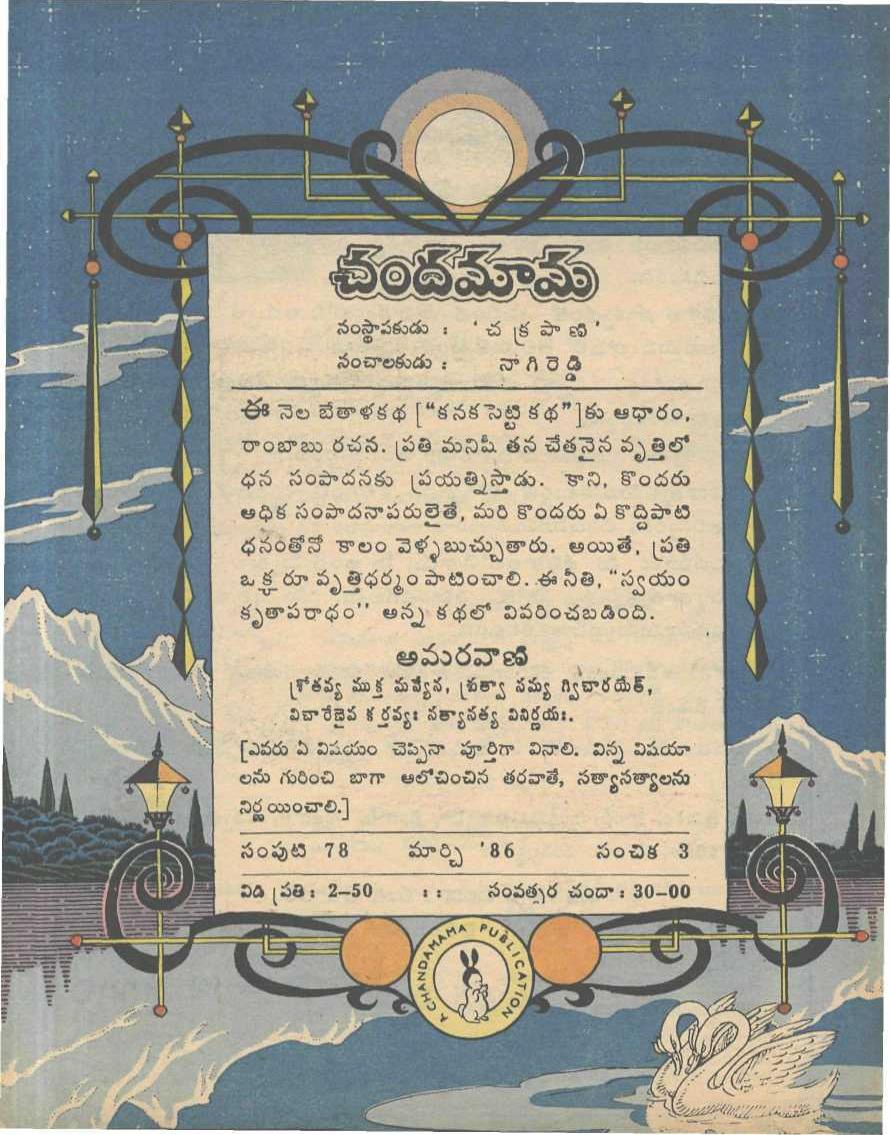 చందమామ
సంస్థాపకుడు : ' చ క్ర పా ణి '
సంచాలకుడు : నా గి రె డ్డి
ఈ నెల బేతాళకథ ["కనకసెట్టి కథ"]కు ఆధారం,
రాంబాబు రచన. ప్రతి మనిషీ తన చేతనైన వృత్తిలో
ధన సంపాదనకు ప్రయత్నిస్తాడు. కాని, కొందరు
అధిక సంపాదనాపరులైతే, మరి కొందరు ఏ కొద్దిపాటి
ధనంతోనో కాలం వెళ్ళబుచ్చుతారు. అయితే, ప్రతి
ఒక్కరూ వృత్తిధర్మం పాటించాలి. ఈ నీతి, "స్వయం
కృతాపరాధం'' అన్న కథలో వివరించబడింది.
అమరవాణి
శ్రోతవ్య ముక్త మన్యేన, శ్రుత్వా సమ్య గ్విచారయేత్,
విచారేణైవ కర్తవ్యః సత్యాసత్య వినిర్ణయః.
[ఎవరు ఏ విషయం చెప్పినా పూర్తిగా వినాలి. విన్న విషయా
లను గురించి బాగా ఆలోచించిన తరవాతే, సత్యాసత్యాలను
నిర్ణయించాలి.]
సంపుటి 78 మార్చి '86 సంచిక 3
విడి ప్రతి : 2–50 : : సంవత్సర చందా : 30–00
A CHANDAMAMA PUBLICATION